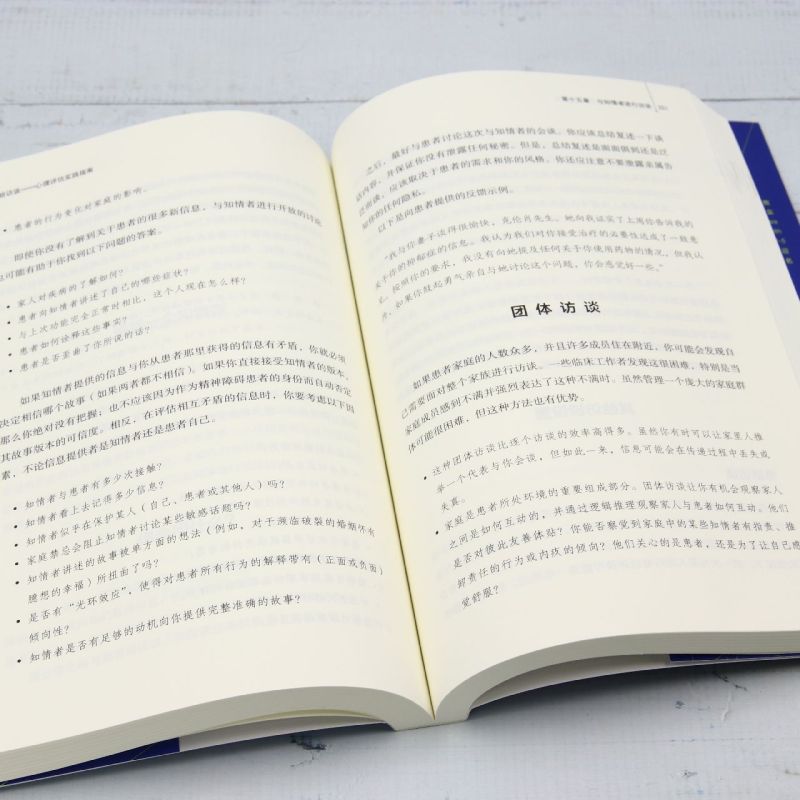 访谈——心理评估实践指南
• 患者的行为变化对家庭的影响。
即使你没有了解到关于患者的很多新信息，与知情者进行开放的讨论
也可能有助于你找到以下问题的答案。
• 家人对疾病的了解如何？
• 患者向知情者讲述了自己的哪些症状？
• 与上次功能完全正常时相比，这个人现在怎么样？
• 患者如何诠释这些事实？
• 患者是否歪曲了你所说的话？
如果知情者提供的信息与你从患者那里获得的信息有矛盾，你就必须
决定相信哪个故事（如果两者都不相信）。如果你直接接受知情者的版本，
那么你绝对没有把握；也不应该因为作为精神障碍患者的身份而自动否定
其故事版本的可信度。相反，在评估相互矛盾的信息时，你要考虑以下因
素，不论信息提供者是知情者还是患者自己。
• 知情者与患者有多少次接触？
• 知情者看上去记得多少信息？
• 知情者似乎在保护某人（自己、患者或其他人）吗？
• 家庭禁忌会阻止知情者讨论某些敏感话题吗？
• 知情者讲述的故事被单方面的想法（例如，对于濒临破裂的婚姻怀有
臆想的幸福）所扭曲了吗？
• 是否有“光环效应”，使得对患者所有行为的解释带有（正面或负面）
倾向性？
• 知情者是否有足够的动机向你提供完整准确的故事？
第十五章 与知情者进行访谈
之后，最好与患者讨论这次与知情者的会谈。你应该总结复述一下谈
话内容，并保证你没有泄露任何秘密。但是，总结复述是面面俱到还是泛
泛而谈，应该取决于患者的需求和你的风格。你还应当注意不要泄露亲属告
知你的任何隐私。
以下是向患者提供的反馈示例。
“我与你妻子谈得很愉快，克伦肖先生。她向我证实了上周你告诉我的
关于你的抑郁症的信息。我认为我们对你接受治疗的必要性达成了一致意
见。按照你的要求，我没有向她提及任何关于你使用药物的情况，但我认
为，如果你鼓起勇气亲自与她讨论这个问题，你会感觉好一些。”
团体访谈
如果患者家庭的人数众多，并且许多成员住在附近，你可能会发现自
己需要面对整个家族进行访谈。一些临床工作者发现这很困难，特别是当
家庭成员感到不满并强烈表达了这种不满时。虽然管理一个庞大的家庭群
体可能很困难，但这种方法也有优势。
• 这种团体访谈比逐个访谈的效率高得多。虽然你有时可以让家里人推
举一个代表与你会谈，但如此一来，信息可能会在传递过程中丢失或
失真。
• 家庭是患者所处环境的重要组成部分。团体访谈让你有机会观察家人
之间是如何互动的，并通过逻辑推理观察家人与患者如何互动。他们
是否对彼此友善体贴？你能否察觉到家庭中的某些知情者有指责、推
卸责任的行为或内疚的倾向？他们关心的是患者，还是为了让自己感
觉舒服？